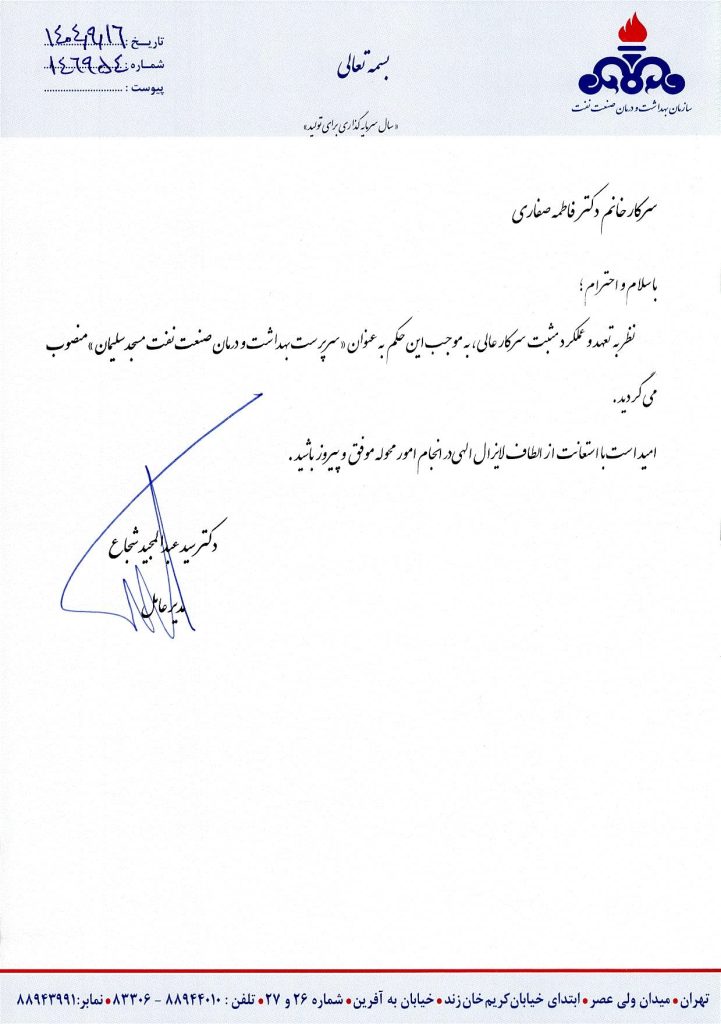 تاریخ : ۱۴۰۴/۹/۱۶
شماره : ۱۴۶۹۵۴
پیوست :
بسمه تعالی
سازمان بهداشت و درمان صنعت نفت
«سال سرمایه گذاری برای تولید»
سرکار خانم دکتر فاطمه صفاری
با سلام و احترام ؛
نظر به تعهد و عملکرد مثبت سرکار عالی، به موجب این حکم به عنوان «سرپرست بهداشت و درمان صنعت نفت مسجد سلیمان» منصوب
می گردید.
امید است با استعانت از الطاف لایزال الهی در انجام امور محوله موفق و پیروز باشید.
دکتر سید عبدالمجید شجاع
مدیر عامل
تهران • میدان ولی عصر • ابتدای خیابان کریم خان زند • خیابان به آفرین • شماره ۲۶ و ۲۷ • تلفن : ۸۸۹۴۴۰۱۰ - ۸۳۳۰۶ • نمابر: ۸۸۹۴۳۹۹۱